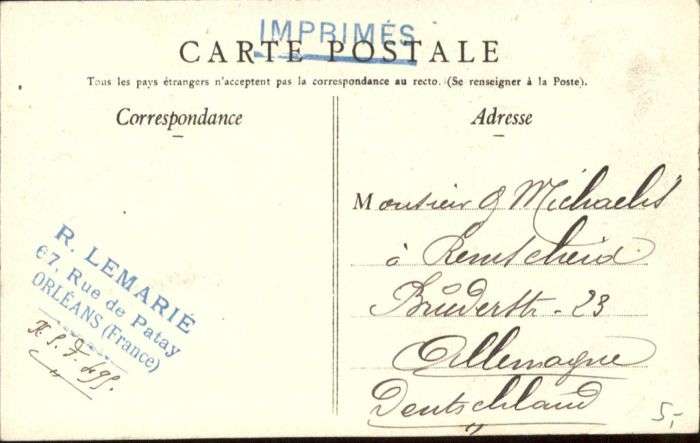 IMPRIMÉS
CARTE POSTALE
Tous les pays étrangers n'acceptent pas la correspondance au recto. (Se renseigner à la Poste).
Correspondance
Adresse
Monsieur G Michaelis
à Remscheid
Brüderstr - 23
Allemagne
Deutschland
R. LEMARIÉ
67, Rue de Patay
ORLÉANS (France)
5,-